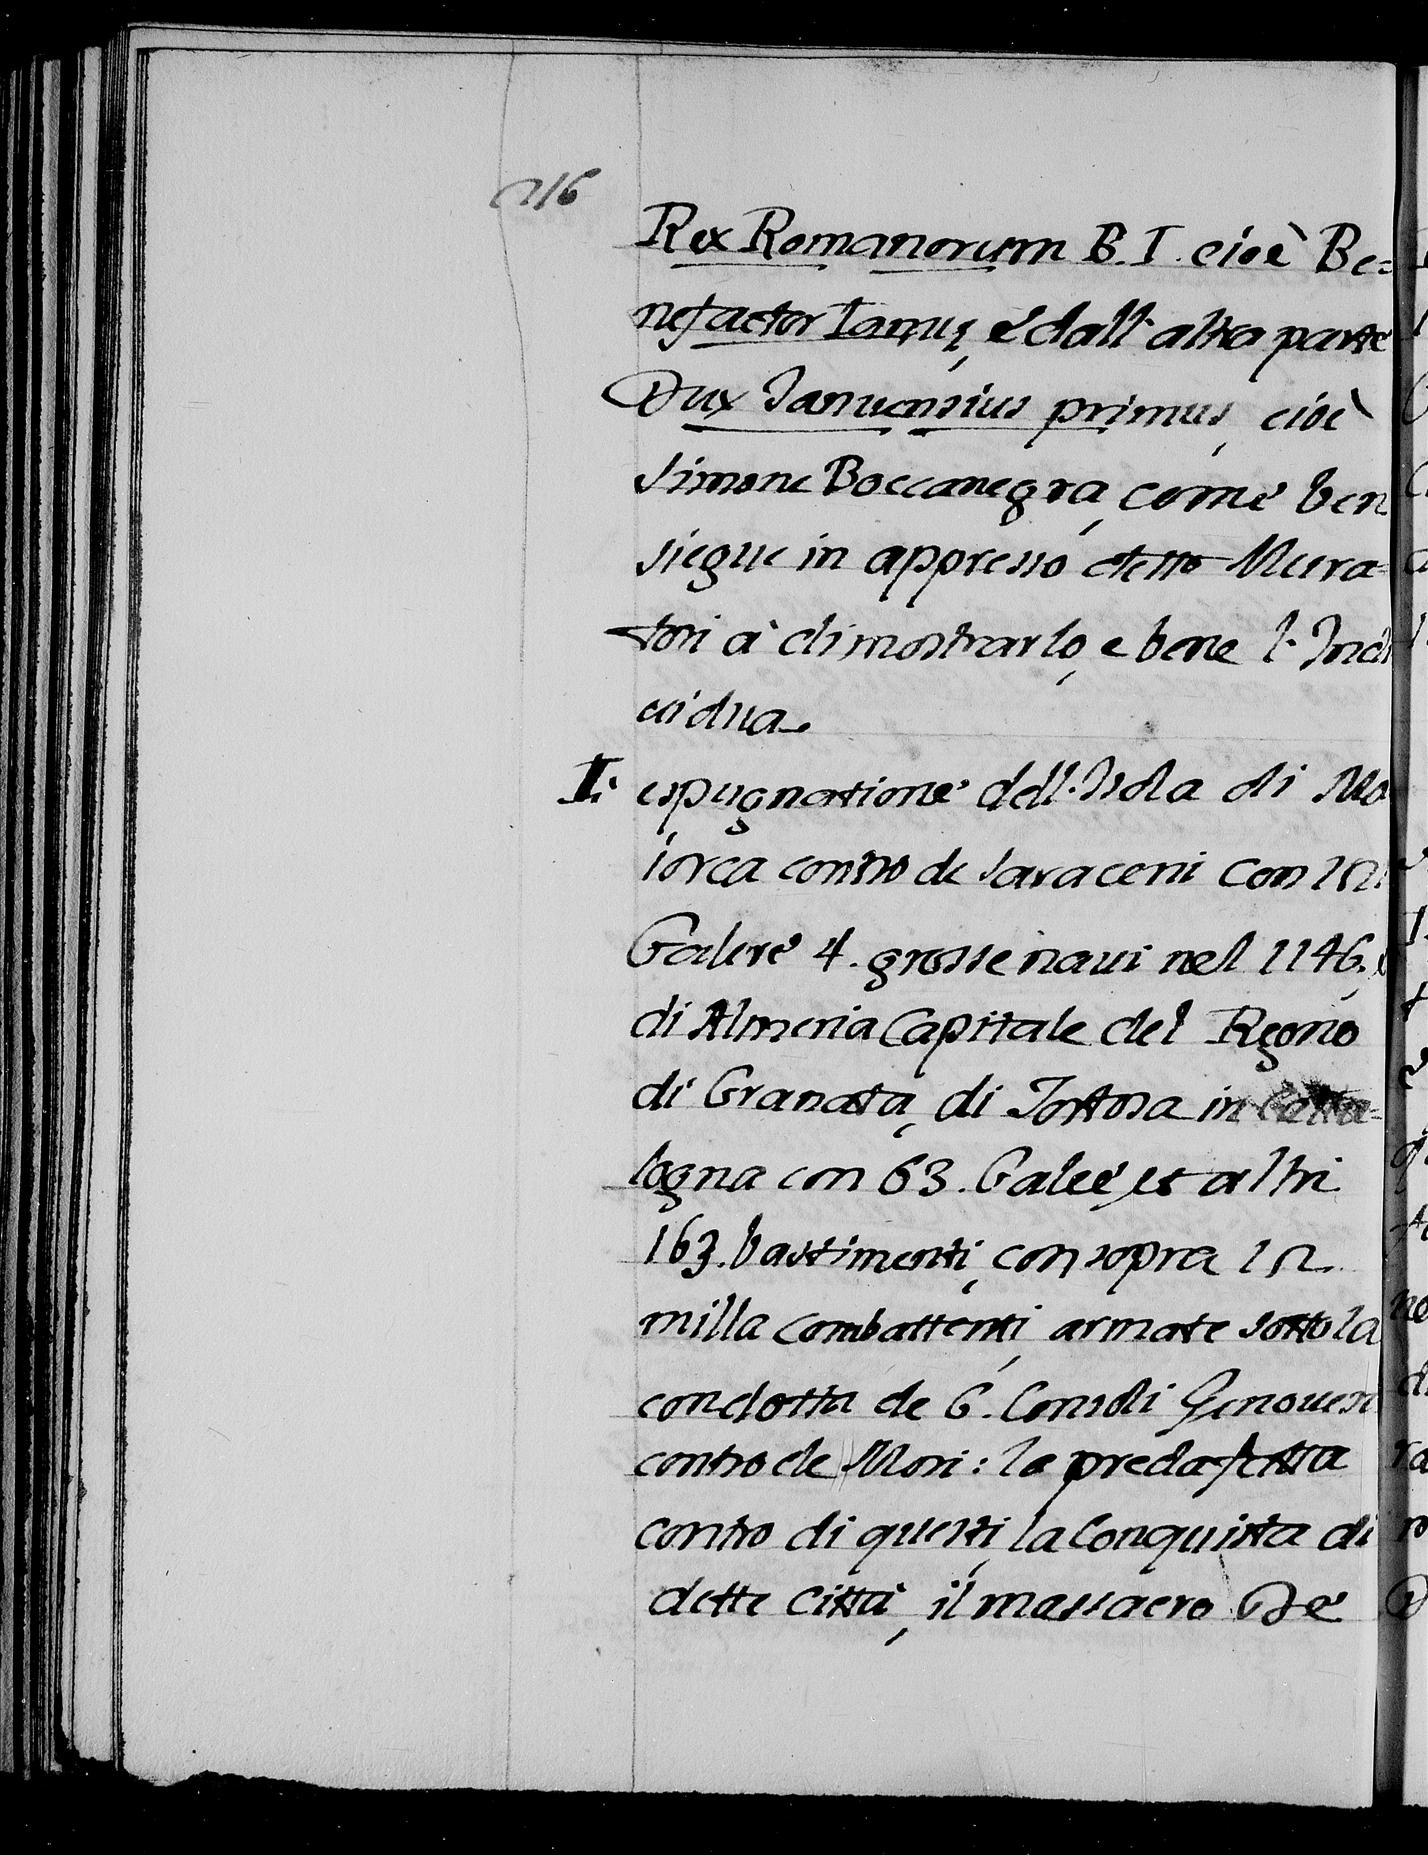 216
Rex Romanorum B. I. cioè Be=
nefactor Ianuę, e dall' altra parte
Dux Ianuensius primus, cioè
Simone Boccanegra, come ben
siegue in appresso detto Mura=
tori à dimostrarlo, e bene l' Indi
vidua.
I: espugnatione dell' Isola di Ma
iorca contro de Saraceni con 22.
Galere 4. grosse naui nel 1146.,
di Almeria Capitale del Regno
di Granata, di Tortosa in Catta=
logna con 63. Galee, et altri
163. bastimenti, con sopra 12
milla combattenti, armate sotto la
condotta de 6. Consoli Genouesi
contro de Mori: la preda fatta
contro di questi, la Conquista di
dette Città, il massacro De